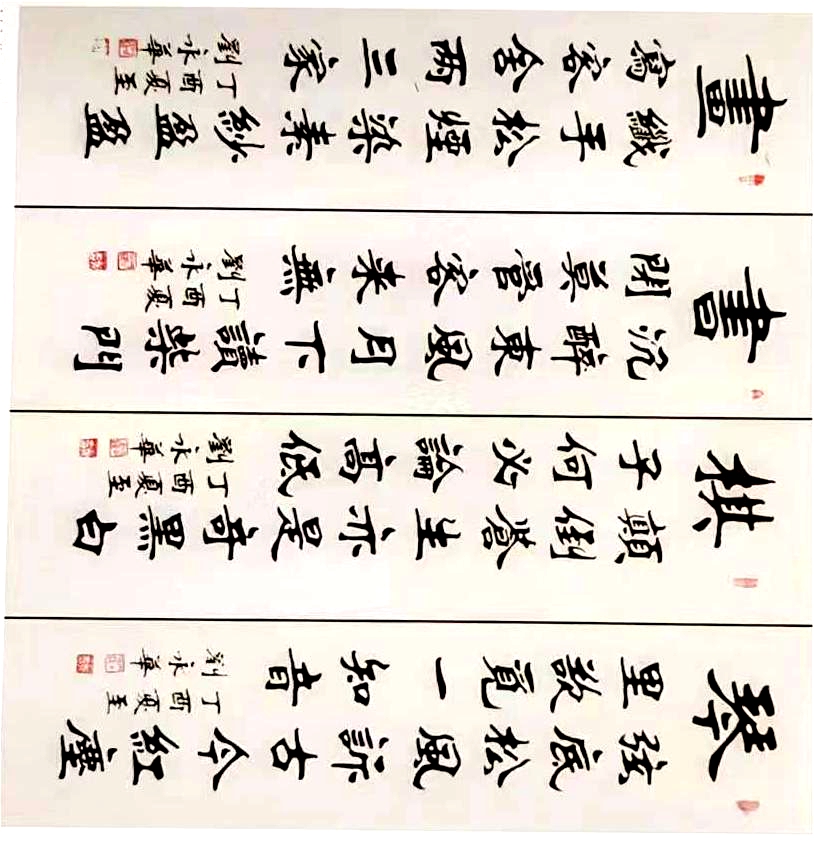 琴
弦底松風訴古今紅塵
里數覓一知音
丁酉夏至
劉永華
棋
顛倒蒼生亦是奇黑白
子何必論高低
丁酉夏至
劉永華
書
沉醉東風月下讀柴門
閉莫管客来無
丁酉夏
劉永華
畫
纖手松煙染素紗盈盈
寫客舍两三家
丁酉夏至
劉永華